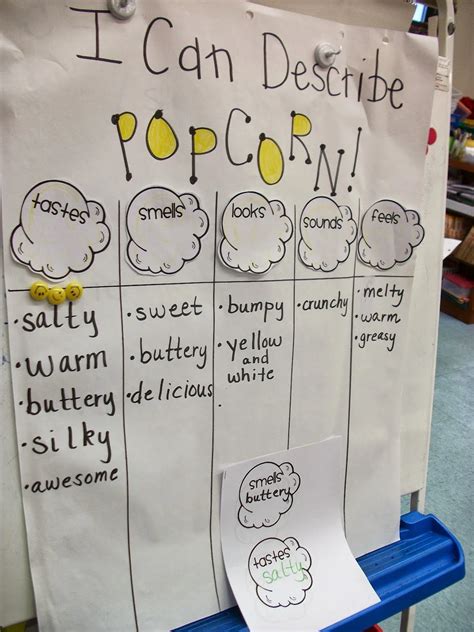 I Can Describe
POPCORN!
tastes
smells
looks
sounds
feels
• salty
• warm
• buttery
• silky
• awesome
• sweet
• buttery
• delicious
• bumpy
• yellow
and
white
• crunchy
• melty
• warm
• greasy
smells
buttery
tastes
salty